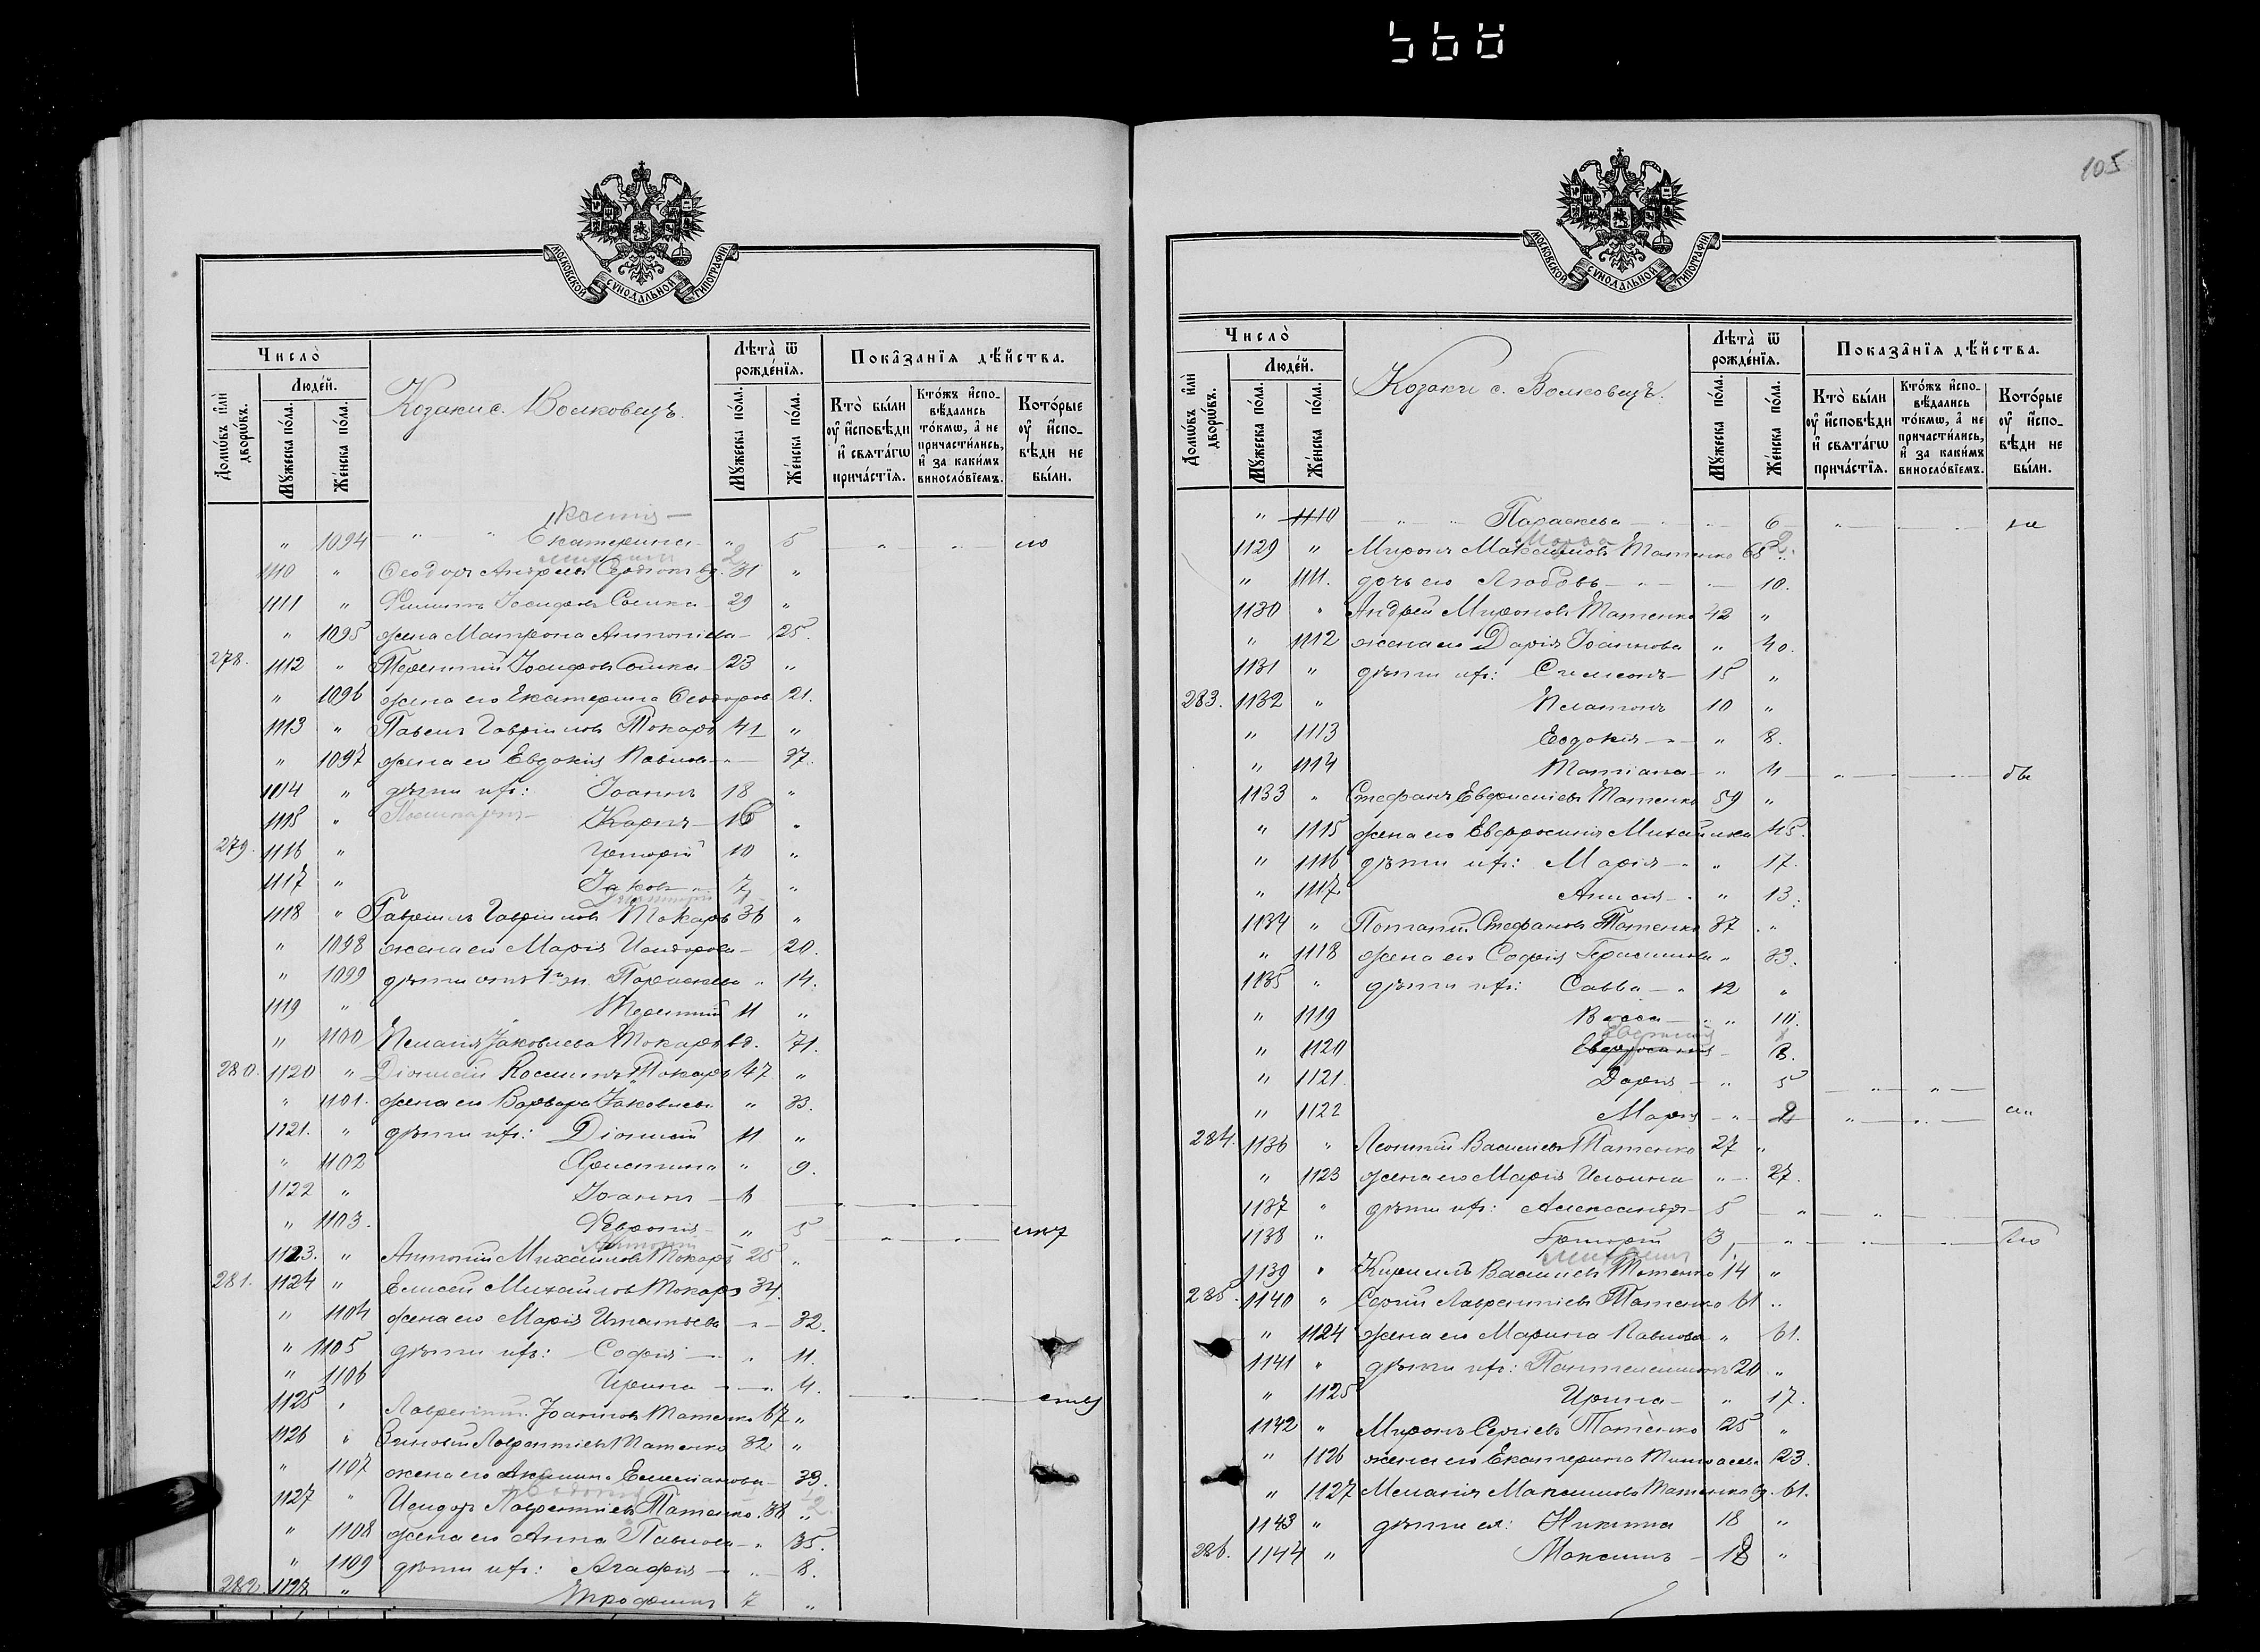 568
105
МОСКОВСКОЙ СѴНОДАЛЬНОЙ ТИПОГРАФІИ.
Число̀
Люде́й.
Домѡ́въ и҆лѝ дворѡ́въ.
Мꙋ́жеска по́ла.
Же́нска по́ла.
Козаки с. Волковецъ.
Лѣта̀ ѿ рожде́нїѧ.
Мꙋ́жеска по́ла.
Же́нска по́ла.
Показа̑нїѧ дѣ́йства.
Кто̀ бы́ли ᲂу҆ и҆сповѣ́ди и҆ свѧта́гѡ прича́стїѧ.
Кто́жъ и҆спо-вѣ́дались то́кмѡ, а҆ не причасти́лись, и҆ за каки́мъ виносло́вїемъ.
Кото́рые ᲂу҆ и҆спо-вѣ́ди не бы́ли.
" 1094 — " — " Екатерина — " 5 " "
1110 " Ѳеодоръ 31 "
1111 " Филиппъ Іосифовъ Сошка 29 "
" 1095 жена Матрона Антоніева — 25.
278. 1112 " Терентій Іосифовъ Сошка 23 "
" 1096 жена его Екатерина Ѳеодоров 21.
1113 " Павелъ Гавріиловъ Токарь 41 "
" 1097 жена его Евдокія Павлова — 37.
1114 " дѣти ихъ: Іоаннъ 18 "
1115 " Карпъ — 16 "
279. 1116 " Григорій 10 "
1117 " Іаковъ — 7 "
1118 " Гавріилъ Гавріиловъ Токарь 36 "
" 1098 жена его Марія Исидорова — 20.
" 1099 дѣти отъ 1й ж. Параскева " 14.
1119 " Терентій 11 "
" 1100 Пелагія Іаковлева Токарь вд. 71.
280. 1120 " Діонисій Токарь 47 "
" 1101. жена его Варвара Іаковлева " 33.
1121. " дѣти ихъ: Діонисій 11 "
" 1102 Христина " 9.
1122 " Іоаннъ — 6
" 1103. Февронія " 5 " "
1123. " Антоній Михаиловъ Токарь 25 "
281. 1124 " Елисей Михаиловъ Токарь 34.
" 1104 жена его Марія Игнатьева — 32.
" 1105 дѣти ихъ: Софія — " 11.
" 1106 Ирина — 4.
1125 " Лаврентій Іоанновъ Татенко 67 "
1126 " Зиновій Лаврентіевъ Татенко 32 "
" 1107 жена его Акилина Емеліанова — 33.
1127 " Исидоръ Лаврентіевъ Татенко. 38 "
" 1108 жена его Анна Павлова — " 35.
" 1109 дѣти ихъ: Агафія — " 8.
282. 1128 " Трофимъ 7 "
МОСКОВСКОЙ СѴНОДАЛЬНОЙ ТИПОГРАФІИ.
Число̀
Люде́й.
Домѡ́въ и҆лѝ дворѡ́въ.
Мꙋ́жеска по́ла.
Же́нска по́ла.
Козаки с. Волковецъ.
Лѣта̀ ѿ рожде́нїѧ.
Мꙋ́жеска по́ла.
Же́нска по́ла.
Показа̑нїѧ дѣ́йства.
Кто̀ бы́ли ᲂу҆ и҆сповѣ́ди и҆ свѧта́гѡ прича́стїѧ.
Кто́жъ и҆спо-вѣ́дались то́кмѡ, а҆ не причасти́лись, и҆ за каки́мъ виносло́вїемъ.
Кото́рые ᲂу҆ и҆спо-вѣ́ди не бы́ли.
" 1110 — " — " Параскева — 6 " "
1129 " Миронъ Максимовъ Татенко 68 "
" 1111. дочь его Любовь — " 10.
1130 " Андрей Мироновъ Татенко 42 "
" 1112 жена его Дарія Іоаннова " 40.
1131 " дѣти ихъ: Симеонъ — 15 "
283. 1132 " Платонъ 10 "
" 1113 Евдокія — " 8.
" 1114 Татіана — " 4 " "
1133 " Стефанъ Татенко 59 "
" 1115 жена его Евфросинія Михайлова 45.
" 1116 дѣти ихъ: Марія — " 17.
" 1117 Анисія — " 13.
1134 " Потапій Стефановъ Татенко 37 "
" 1118 жена его Софія Герасимова " 33.
1135 " дѣти ихъ: Савва — " 12 "
" 1119 Васса — " 10.
" 1120 Евфросинія — 8.
" 1121 Дарія — " 5 " "
" 1122 Марія — " 2 " "
284. 1136 " Леонтій Василіевъ Татенко 27 "
" 1123 жена его Марія " 27.
1137 " дѣти ихъ: Александръ — 5 " "
1138 " Григорій 3 " "
1139 " Кириллъ Василіевъ Татенко 14 "
285. 1140 " Сергій Лаврентіевъ Татенко 61 "
" 1124 жена его Марина Павлова " 61.
1141 " дѣти ихъ: Пантелеимонъ 20 "
" 1125 Ирина — " 17.
1142 " Миронъ Сергіевъ Татенко 25 "
" 1126 жена его Екатерина 23.
" 1127 Меланія Максимова Татенко вд. 61.
1143 " дѣти ея: Никита 18 "
286. 1144 " Максимъ — 18 "